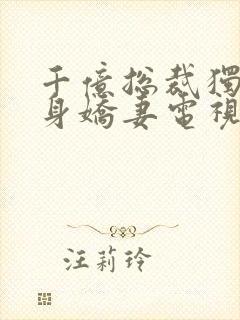 千億總裁獨
身嬌妻電視
汪莉玲